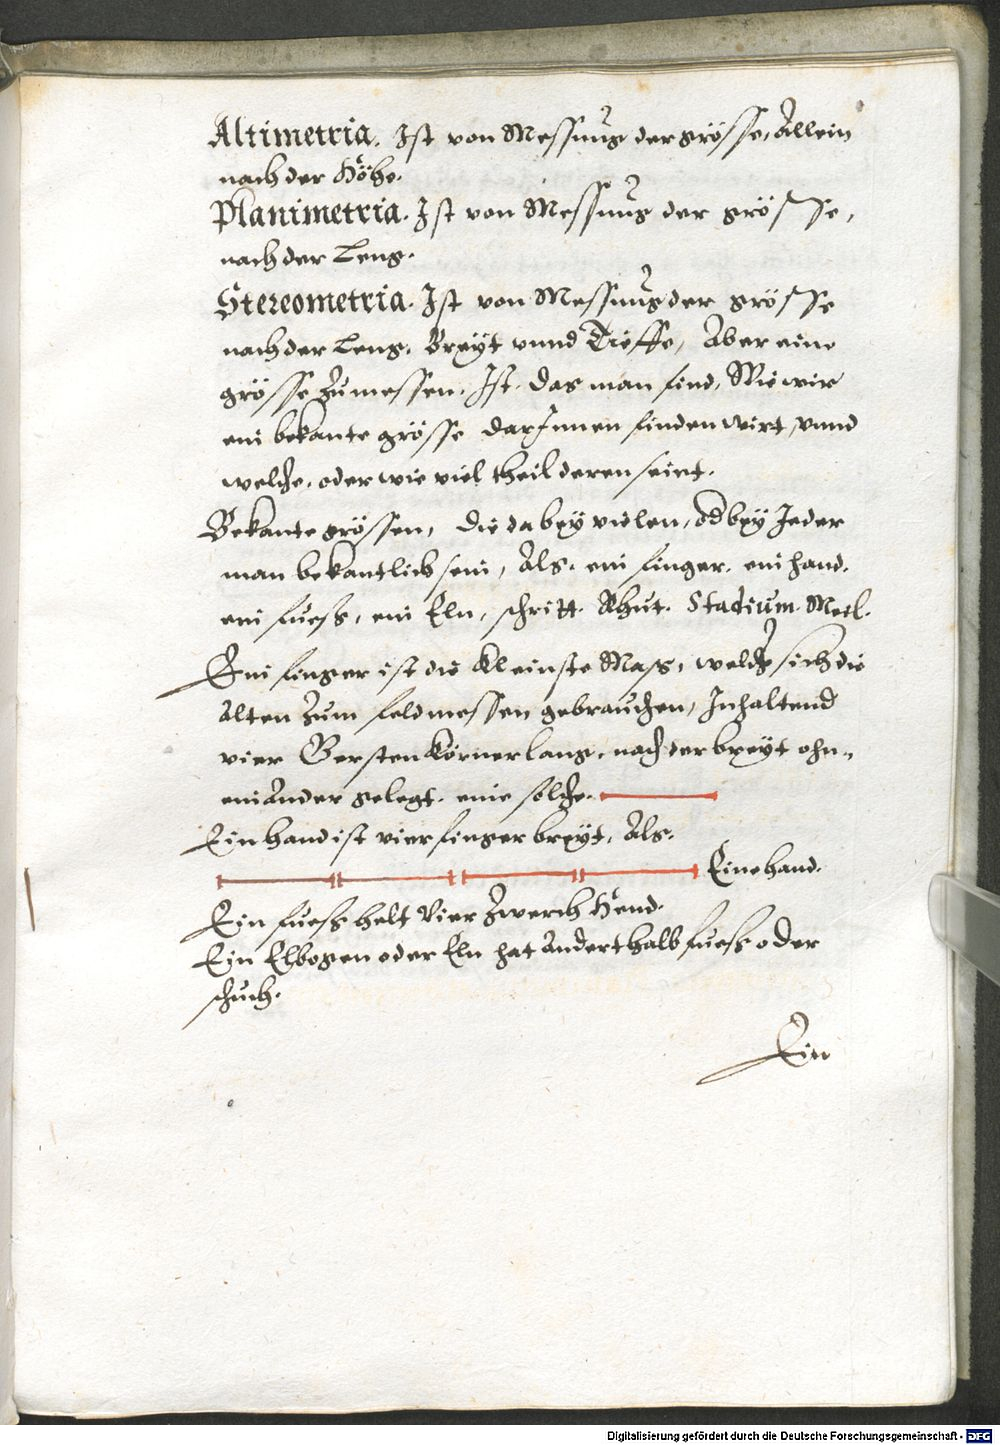 Altimetria. Ist von Messung der grösse, Allein
nach der Höhe.
Planimetria. Ist von Messung der grösse,
nach der Leng.
Stereometria. Ist von Messung der grösse
nach der Leng, Breyt vnnd Tieffe, Aber eine
grösse Zumessen. Ist. das man find, Wie wir
ein bekante grösse darInnen finden wirt, vnnd
welche, oder wie viel theil deren seint.
Bekante grössen, die da bey vielen, od bey Jeder
man bekantlich sein, Als. ein finger. ein hand.
ein fuess, ein Eln, schritt. Rhut. Stadium. Meil.
Ein finger ist die Kleinste Mass, welche sich die
Alten Zum feldmessen gebrauchen, Inhaltend
vier Gerstenkörner lang, nach der breyt ohn„
einAnder gelegt. eine solche.
Ein hand ist vier finger breyt, Als.
Eine hand.
Ein fuess helt Vier Zwerch Hend.
Ein Elbogen oder Eln hat Anderthalb fuess oder
schuch.
Ein
Digitalisierung gefördert durch die Deutsche Forschungsgemeinschaft - DFG